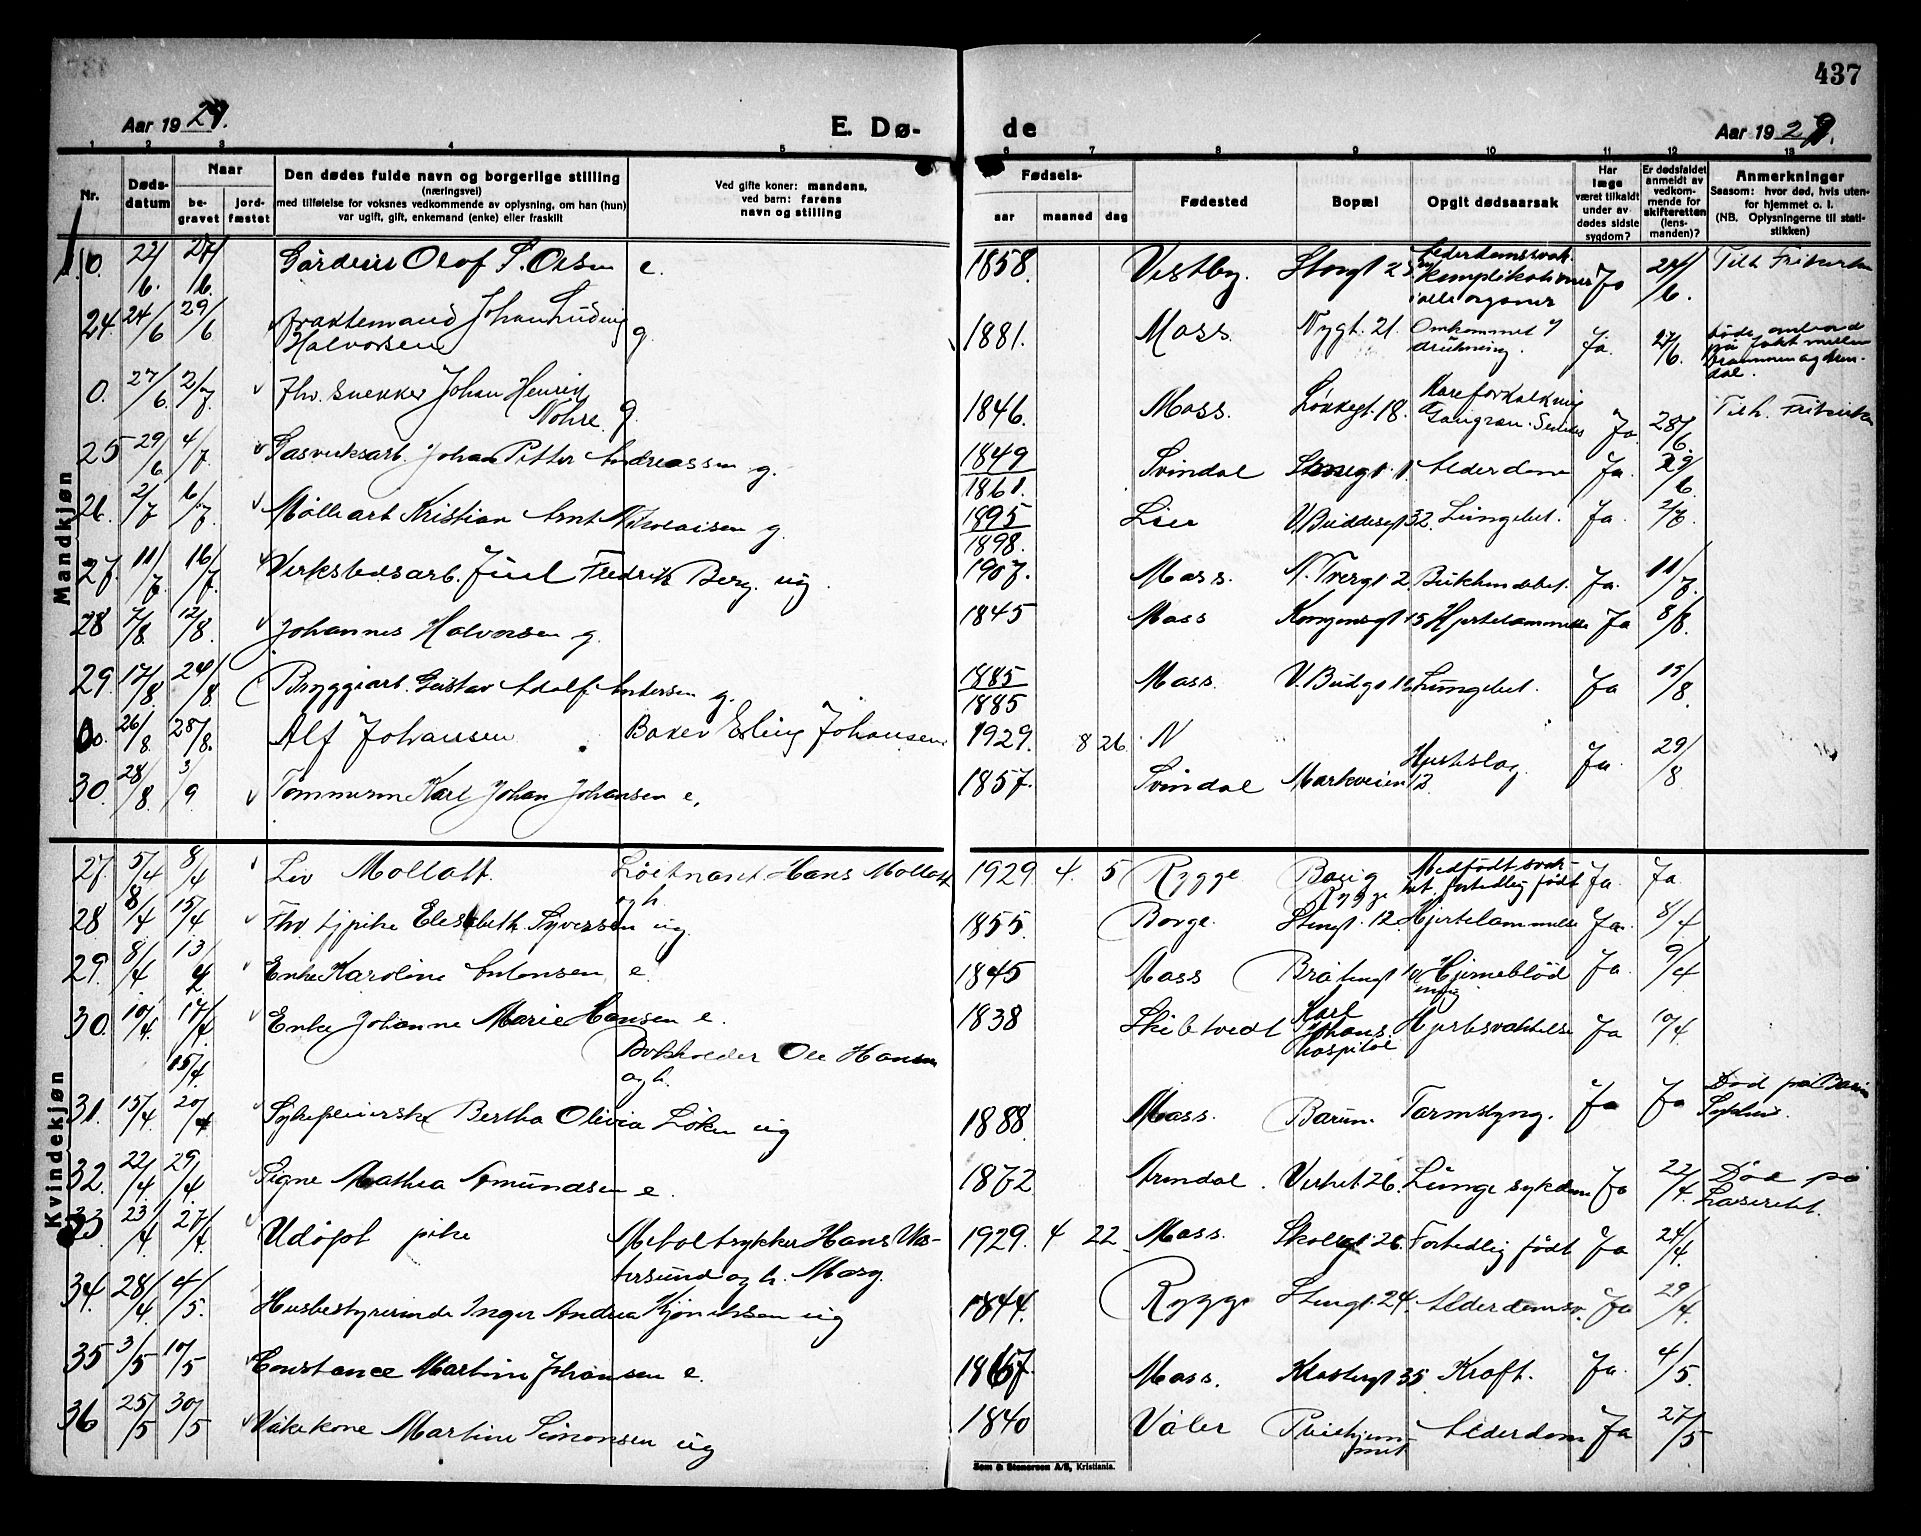 437
Aar 1929.
E. Dø-
de
Aar 1929.
1 2 3 4 5 6 7 8 9 10 11 12 13
Nr.
Døds-
datum
Naar
be-
gravet
jord-
fæstet
Den dødes fulde navn og borgerlige stilling
(næringsvei)
med tilføielse for voksnes vedkommende av oplysning, om han (hun)
var ugift, gift, enkemand (enke) eller fraskilt
Ved gifte koner: mandens,
ved barn: farens
navn og stilling
Fødsels-
aar maaned dag
Fødested
Bopæl
Opgit dødsaarsak
Har
læge
været tilkaldt
under av
dødes sidste
sygdom?
Er dødsfaldet
anmeldt av
vedkom-
mende for
skifteretten
(lens-
manden)?
Anmerkninger
Saasom: hvor død, hvis uten-
for hjemmet o. l.
(NB. Oplysningerne til stati-
stikken)
Mandkjøn
0. 22/6. 27/6 Olof S. Olsen e. 1858. Vestby. Storgt 25 Alderdomssvak. komplikationer i alle organer Ja 24/6. Tilh. Frikirken
24. 24/6 29/6 Fraktemand Johan Ludvig Halvorsen g. 1881. Moss. Nygt. 21. Omkommet v drukning. Ja. 27/6. Døde ombord på Jakt mellem Drammen og
0. 27/6. 2/7. Fhv. snekker Johan Henrik Nohre. g. 1846. Moss. Løkkegt. 18. Aareforkalkning Gangræn. Senilis Ja. 28/6. Tilh. Frikirken
25 29/6 4/7. Gasverksarb. Johan Petter Andreassen g. 1849 1861. Svindal 1. Alderdom Ja. 29/6.
26. 2/7 6/7. Møllearb Kristian Arnt Nicolaisen g. 1895 1898. Lier V. Buddesgt 32. Lungebet. Ja. 2/7.
27. 11/7 16/7. Verkstedsarb. Juul Fredrik Berg. ug. 1907. Moss. N. Torvgt 2. Bukhindebet. Ja. 11/7.
28 7/8. 12/8. Johannes Halvorsen g. 1845 Moss Kongensgt 15 Hjertelammelse Ja 8/8.
29. 17/8. 24/8 Bryggiarb. Gustav Adolf Andersen g. 1885 1885 Moss. V. Budgt Lungebet. Ja 19/8.
0. 26/8. 28/8. Alf Johansen Baker Erling Johansen. 1929. 8 26. N
30. 28/8. 3/9 Tømmerm Karl Johan Johansen e. 1857. Svindal Markveien 12. Hjerteslag Ja. 29/8
Kvindekjøn
27. 5/4 8/4 Liv Mollatt. Løitnant Hans Mollatt og h. 1929 4. 5 Rygge Rygge Medfødt svak- het. fortidlig født Ja. Ja.
28 8/4 15/4 Fhv tjpike Elesabeth Syversen ug. 1855. Borge. Stengt. 12. Hjertelammelse Ja. 8/4
29. 8/4 13/4 Enke Karoline Antonsen e. 1845 Moss Bråtengt 14 Hjerneblød ning Ja. 9/4
30. 10/4. 17/4 Enke Johanne Marie Hansen e. 1838 Skibtvedt Karl Johans hospital Hjertesvakkelse Ja 10/4
15/4. Bokholder Ole Hansen og h.
31. 15/4. 20/4 Sykepleierske Bertha Olivia Løken ug 1888. Moss. Bærum. Tarmslyng. Ja Ja Død på Bærum Sykehus.
32. 22/4 29/4. Signe Mathea Amundsen e. 1872 Arndal. Verket 26. Lunge sykdom Ja 22/4. Død på Lasarettet.
33 23/4. 27/4 Udøpt pike Møbeltrykker Hans Wes- tersund og h. Marg. 1929. 4 22 Moss. Skolegt. 26. Fortidlig født Ja 24/4.
34. 28/4 4/5. Husbestyrerinde Inger Andrea ug 1844. Rygge Stengt. 24. Alderdomsv. Ja 29/4.
35 3/5 10/5 Constance Martine Johansen e. 1867. Moss. Klostergt 35. Kræft. Ja. 4/5.
36 25/5 30/5 Vaskekone Martine Simonsen ug 1840 Våler Pleiehjem- met Alderdom Ja 27/5
Sem & Stenersen A/S, Kristiania.